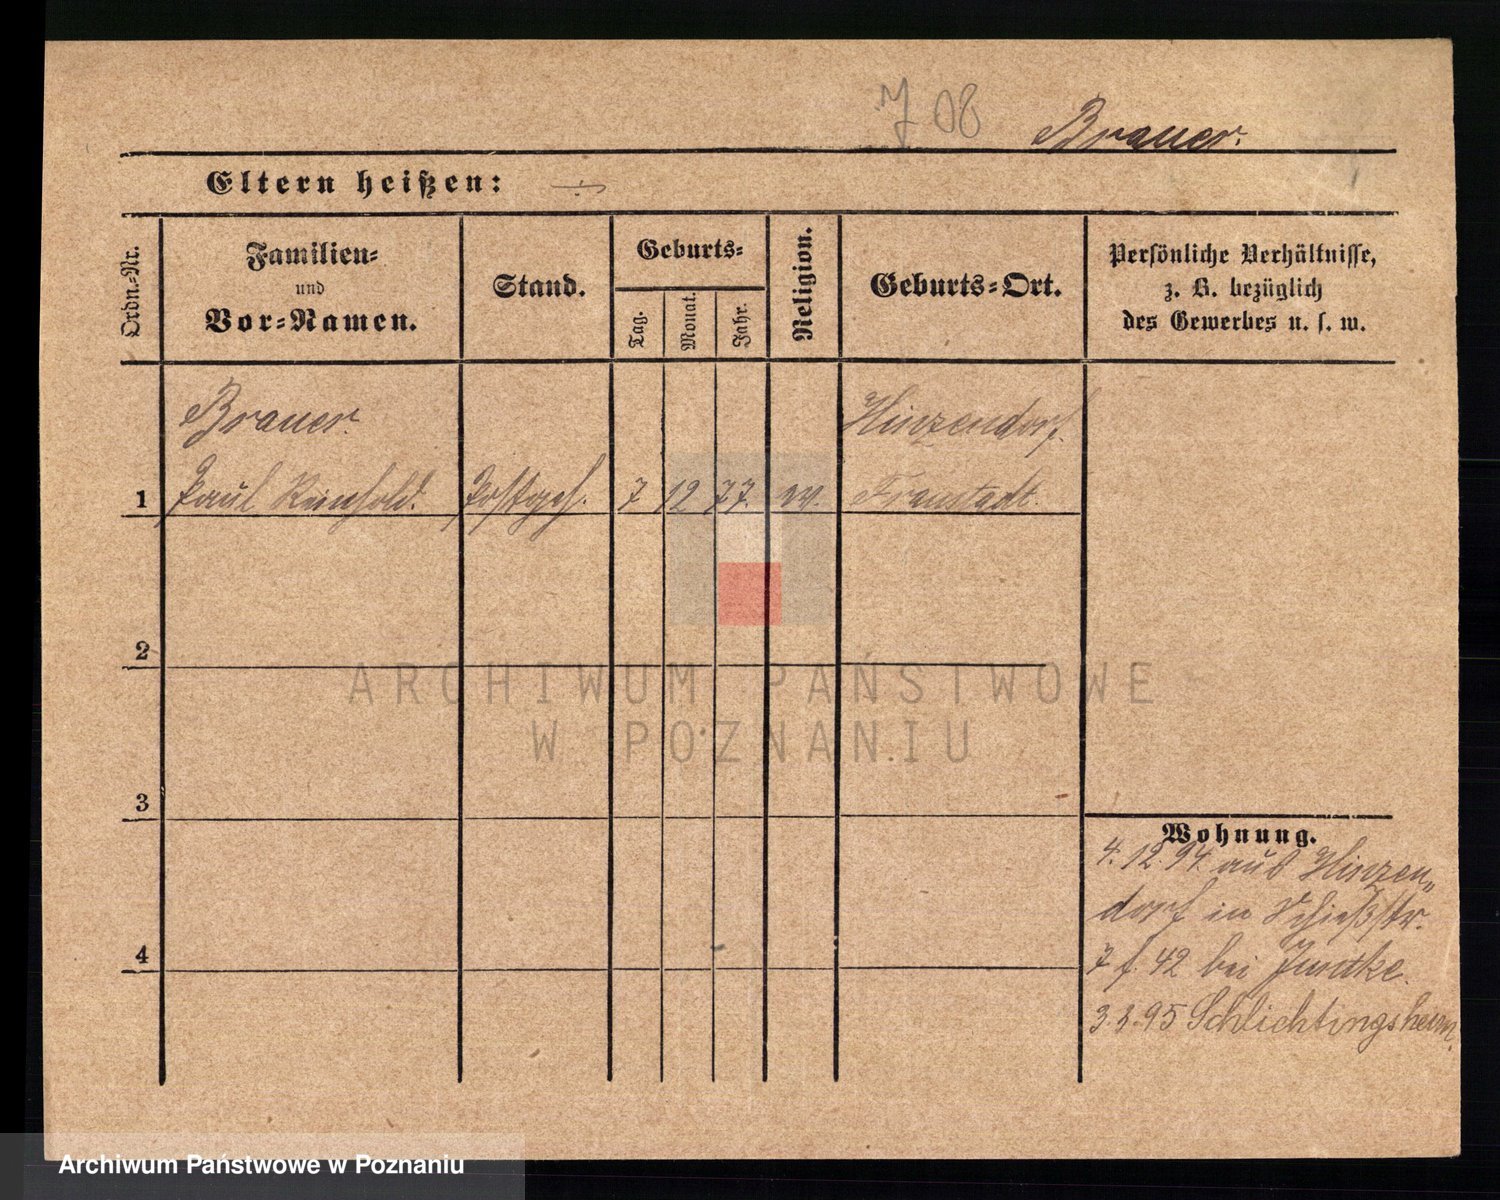 708
Brauer.
Eltern heißen: ÷
Ordn.-Nr.
Familien-
und
Vor-Namen.
Stand.
Geburts-
Tag.
Monat.
Jahr.
Religion.
Geburts-Ort.
Persönliche Verhältnisse,
z. B. bezüglich
des Gewerbes u. s. w.
Brauer. Hinzendorf.
1 Paul Reinhold. Postgeh. 7 12 77. ev. Fraustadt
2
3
4
Wohnung.
4. 12. 94 aus Hinzen„
dorf in Schießstr.
7 f. 42 bei
95 Schlichtingsheim.
ARCHIWUM PAŃSTWOWE
W POZNANIU
Archiwum Państwowe w Poznaniu